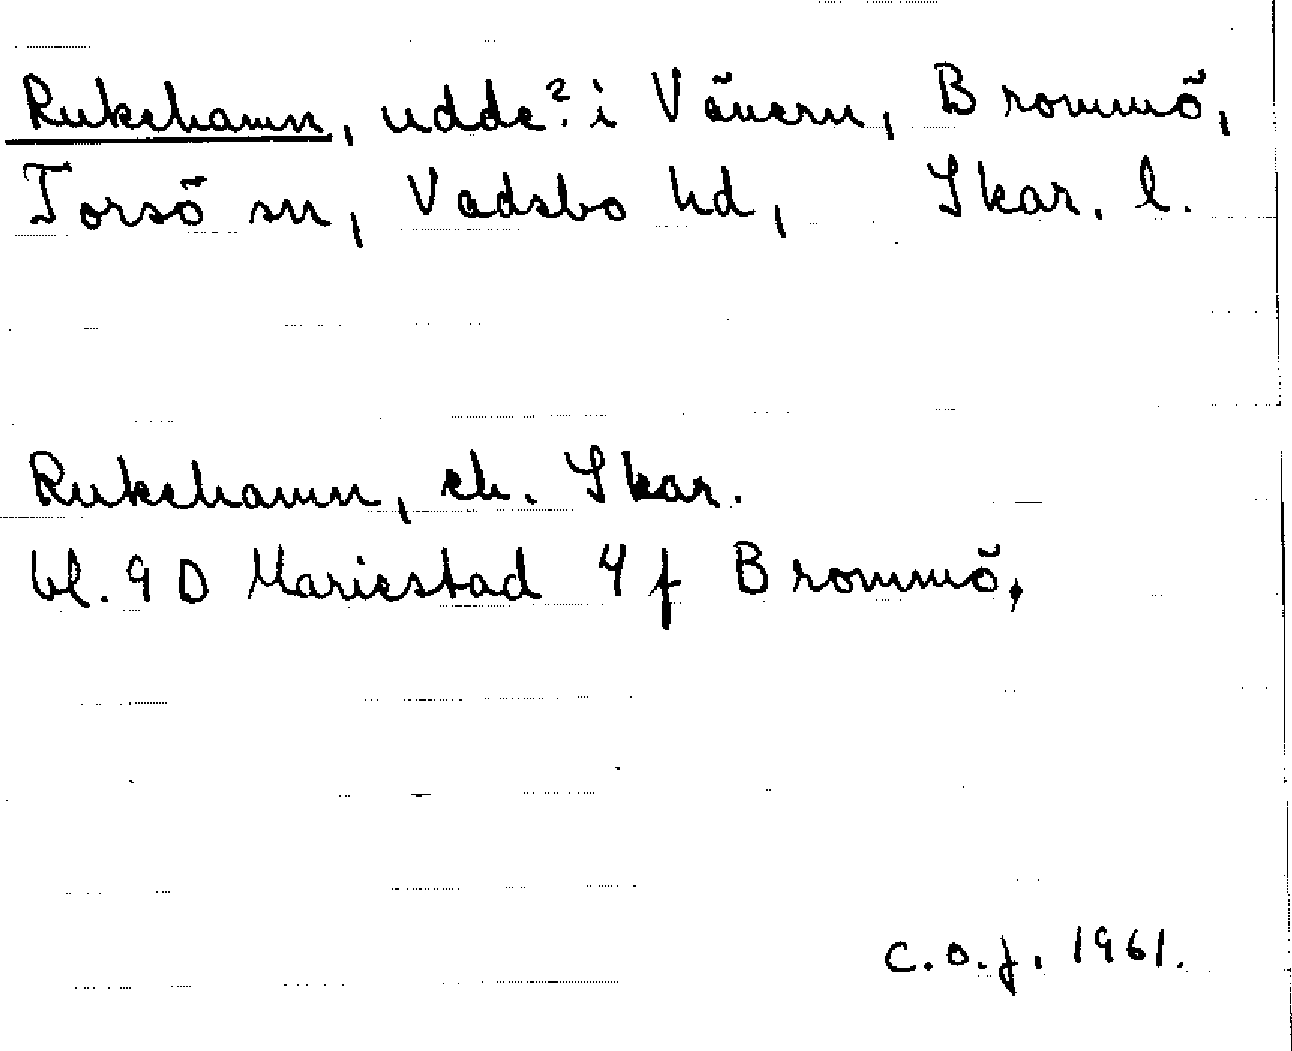 Rukehamn, udde? i Vänern, Brommö,
Torsö sn, Vadsbo hd, Skar. l.
Rukehamn, ek. Skar.
bl. 9 D Mariestad 4 f Brommö,
C.O.f. 1961.